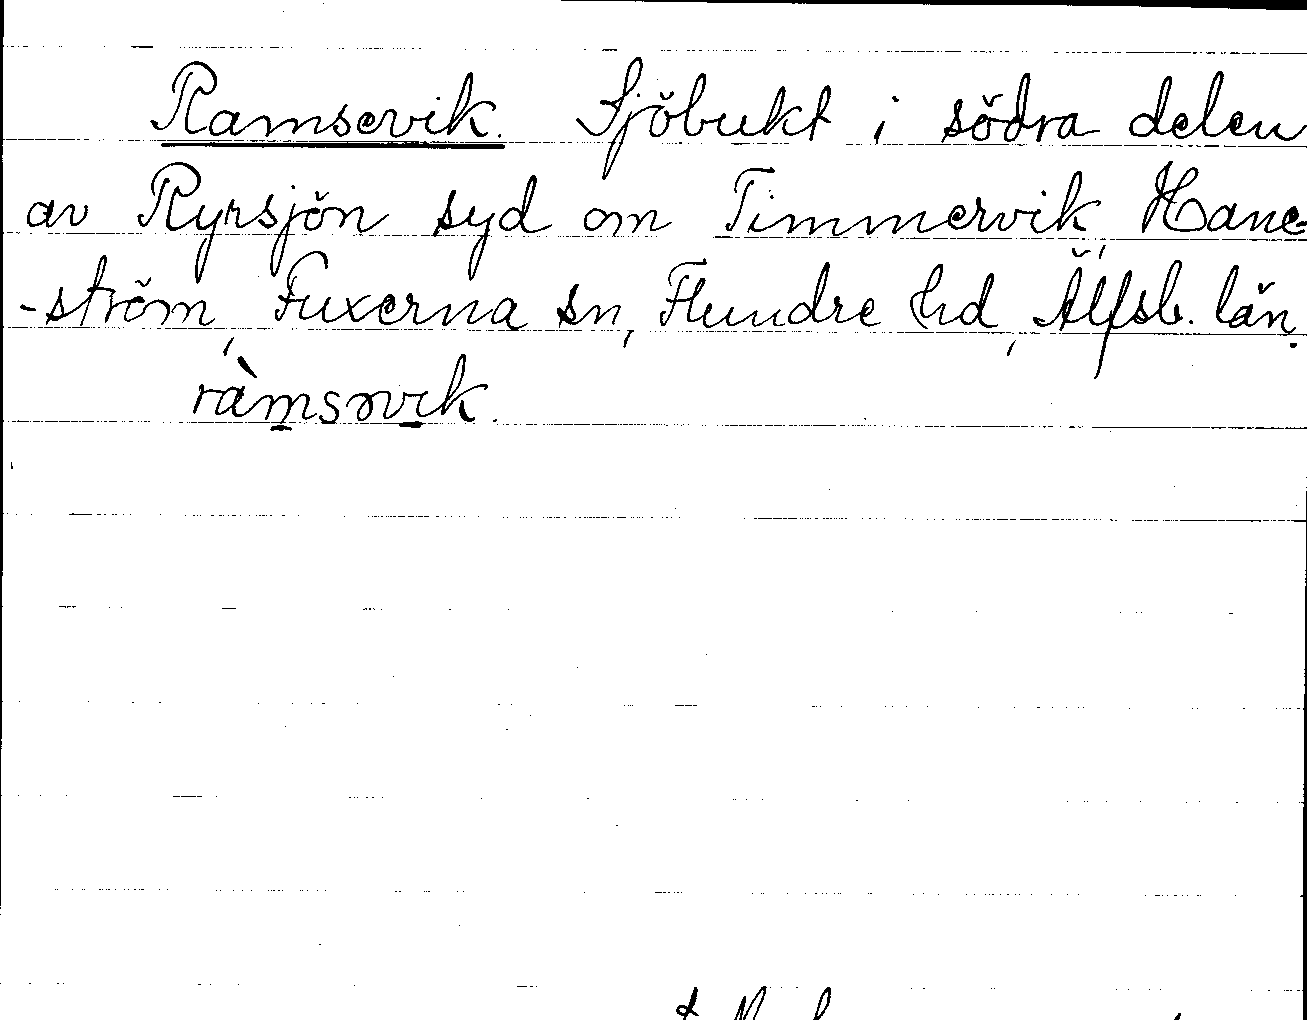 Ramsevik. Sjöbukt i södra delen
av Ryrsjön syd om Timmervik, Hane-
-ström, Fuxerna sn, Flundre hd, Älfsb. län.
ràmsəvik.